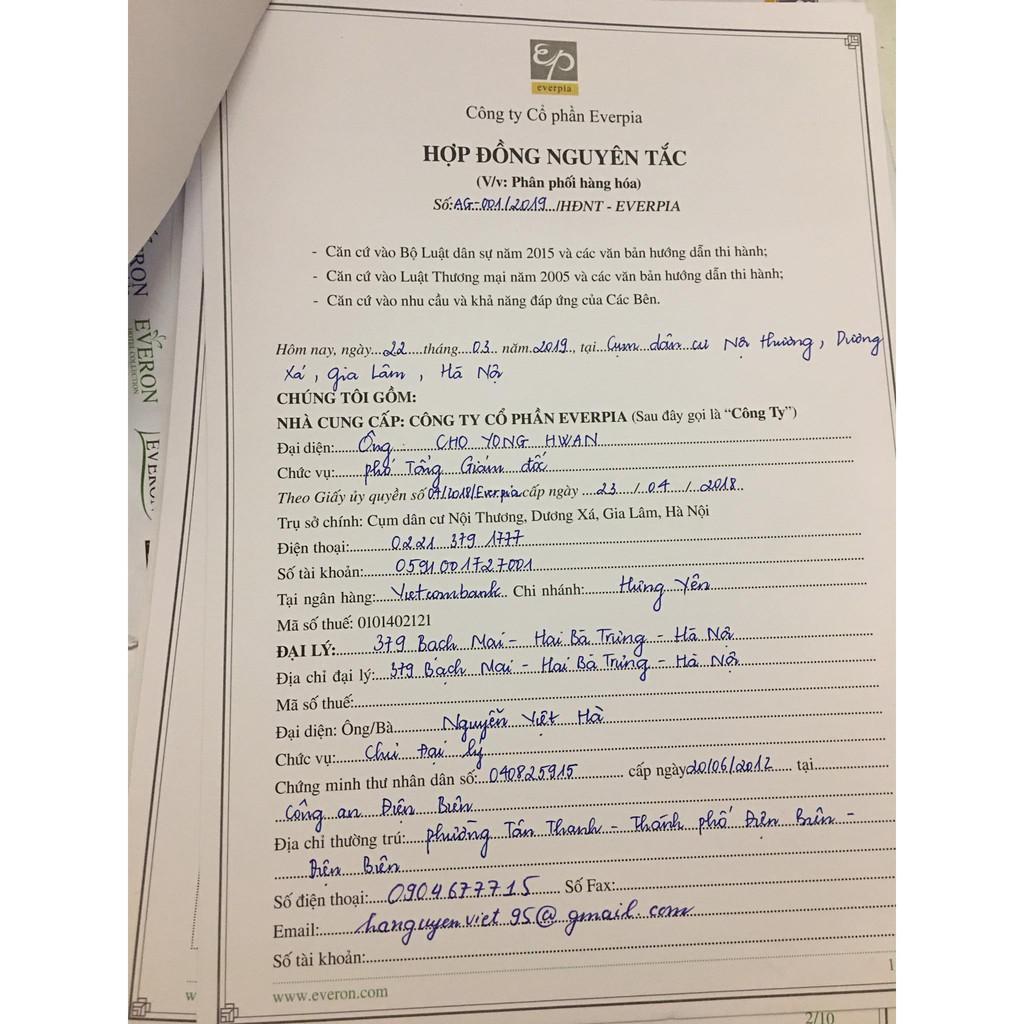 everpia
Công ty Cổ phần Everpia
HỢP ĐỒNG NGUYÊN TẮC
(V/v: Phân phối hàng hóa)
Số: AG-001/2019../HĐNT - EVERPIA
- Căn cứ vào Bộ Luật dân sự năm 2015 và các văn bản hướng dẫn thi hành;
- Căn cứ vào Luật Thương mại năm 2005 và các văn bản hướng dẫn thi hành;
- Căn cứ vào nhu cầu và khả năng đáp ứng của Các Bên.
Hôm nay, ngày...22....tháng...03.. năm.2019., tại...Cụm dân cư Nội Thương, Dương
Xá, Gia Lâm, Hà Nội
CHÚNG TÔI GỒM:
NHÀ CUNG CẤP: CÔNG TY CỔ PHẦN EVERPIA (Sau đây gọi là “Công Ty”)
Đại diện:....Ông CHO YONG HWAN
Chức vụ:....phó Tổng Giám đốc
Theo Giấy ủy quyền số 04/2018/Everpia cấp ngày ....23..../..04..../..2018..
Trụ sở chính: Cụm dân cư Nội Thương, Dương Xá, Gia Lâm, Hà Nội
Điện thoại:.......0221 379 1777
Số tài khoản:.......0591001727001
Tại ngân hàng:...Vietcombank.. Chi nhánh:.......Hưng Yên
Mã số thuế: 0101402121
ĐẠI LÝ:.......379 Bạch Mai - Hai Bà Trưng - Hà Nội
Địa chỉ đại lý:...379 Bạch Mai - Hai Bà Trưng - Hà Nội
Mã số thuế:
Đại diện: Ông/Bà.........Nguyễn Việt Hà
Chức vụ:......Chủ Đại lý
Chứng minh thư nhân dân số:..040825915........... cấp ngày 20/06/2012..... tại
Công an Điện Biên
Địa chỉ thường trú:...phường Tân Thanh - Thành phố Điện Biên -
Điện Biên
Số điện thoại:....0904677715..... Số Fax:
Email:.......hanguyenviet95@gmail.com
Số tài khoản:
1
www.everon.com
2/10
w
RON
EVERON
HOTEL COLLECTION
EVERON